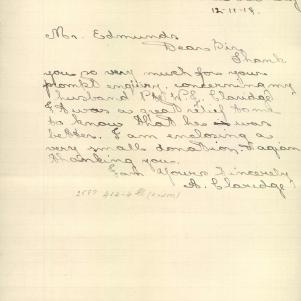 12-11-18.
Mr. Edmunds
Dear Sir,
Thank
you so very much for your
prompt enquiry, concerning my
husband Pte W.E. Claridge
It was a great relief to me
to know that he was
better. I am enclosing a
very small donation, again
thanking you.
I am Yours Sincerely
A. Claridge